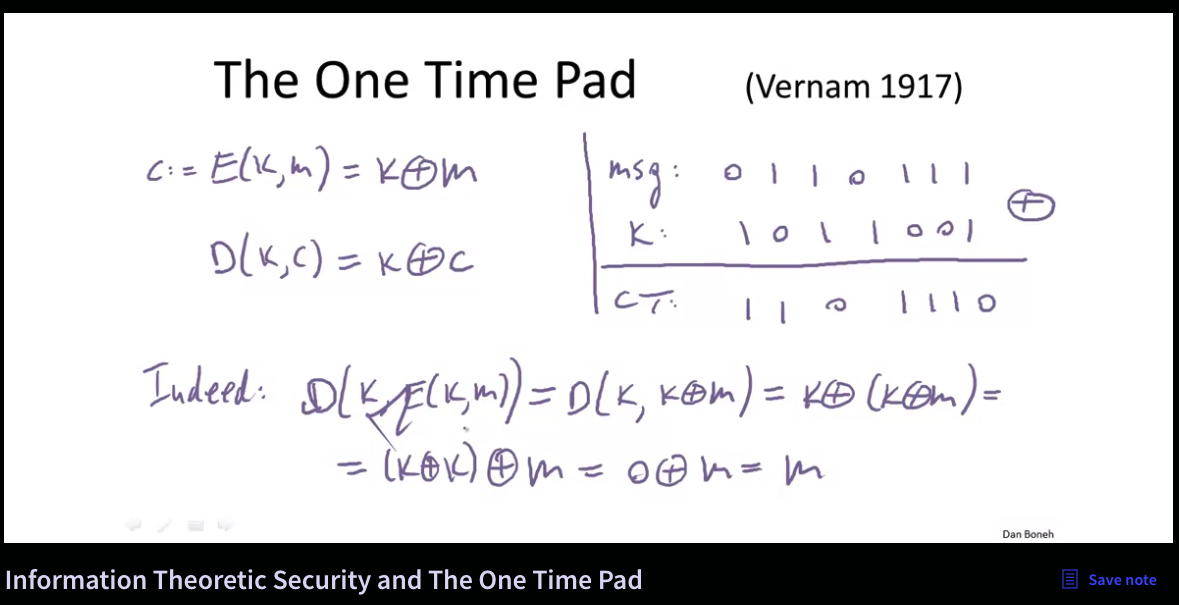 The One Time Pad (Vernam 1917)
C := E(K,m) = K⊕m
D(K,C) = K⊕C
msg: 0 1 1 0 1 1 1
K: 1 0 1 1 0 0 1
⊕
CT: 1 1 0 1 1 1 0
Indeed: D(K,E(K,m)) = D(K, K⊕m) = K⊕(K⊕m) =
= (K⊕K)⊕m = 0⊕m = m
Dan Boneh
Information Theoretic Security and The One Time Pad
Save note